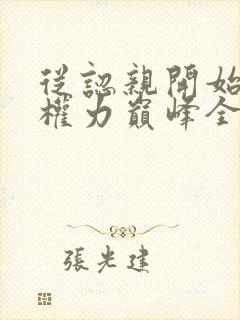 從認親開始
權力巔峰全
張光建